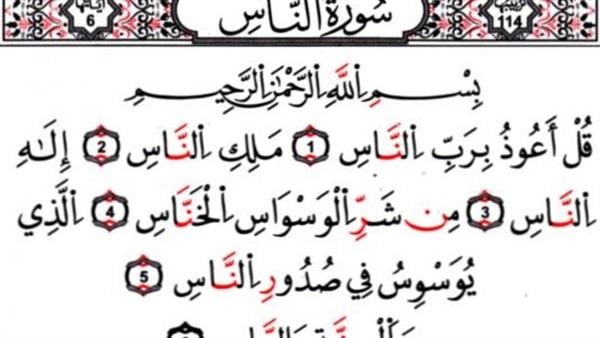 آياتها 6 سُورَةُ النَّاسِ ترتيبها 114
بِسْمِ اِ۬للَّهِ اِ۬لرَّحْمَٰنِ اِ۬لرَّحِيمِ
قُلْ أَعُوذُ بِرَبِّ اِ۬لنَّاسِ 1 مَلِكِ اِ۬لنَّاسِ 2 إِلَٰهِ
اِ۬لنَّاسِ 3 مِن شَرِّ اِ۬لْوَسْوَاسِ اِ۬لْخَنَّاسِ 4 اِ۬لَّذِي
يُوَسْوِسُ فِي صُدُورِ اِ۬لنَّاسِ 5